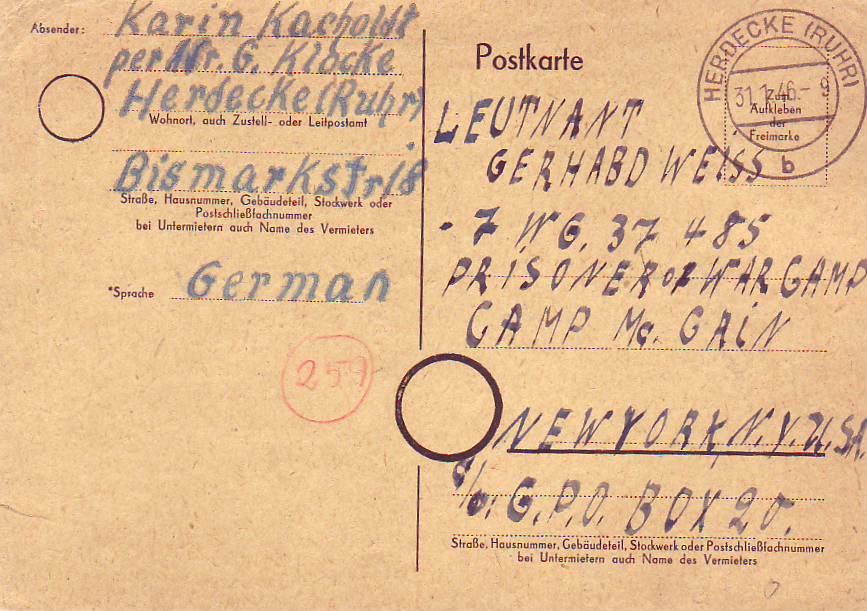 Absender: Karin Kacholdt
per Adr. G. Klocke
Herdecke (Ruhr)
Wohnort, auch Zustell- oder Leitpostamt
Bismarkstr 18
Straße, Hausnummer, Gebäudeteil, Stockwerk oder
Postschließfachnummer
bei Untermietern auch Name des Vermieters
*Sprache German
259
Postkarte
HERDECKE (RUHR)
31.1.46.- 9
b
Zum
Aufkleben
der
Freimarke
LEUTNANT
GERHABD WEISS
- 7 WG. 37 485
PRISONER OF WAR CAMP
CAMP Mc. CAIN
NEW YORK, N.Y. U.SA.
c/o: G.P.O. BOX 20.
Straße, Hausnummer, Gebäudeteil, Stockwerk oder Postschließfachnummer
bei Untermietern auch Name des Vermieters